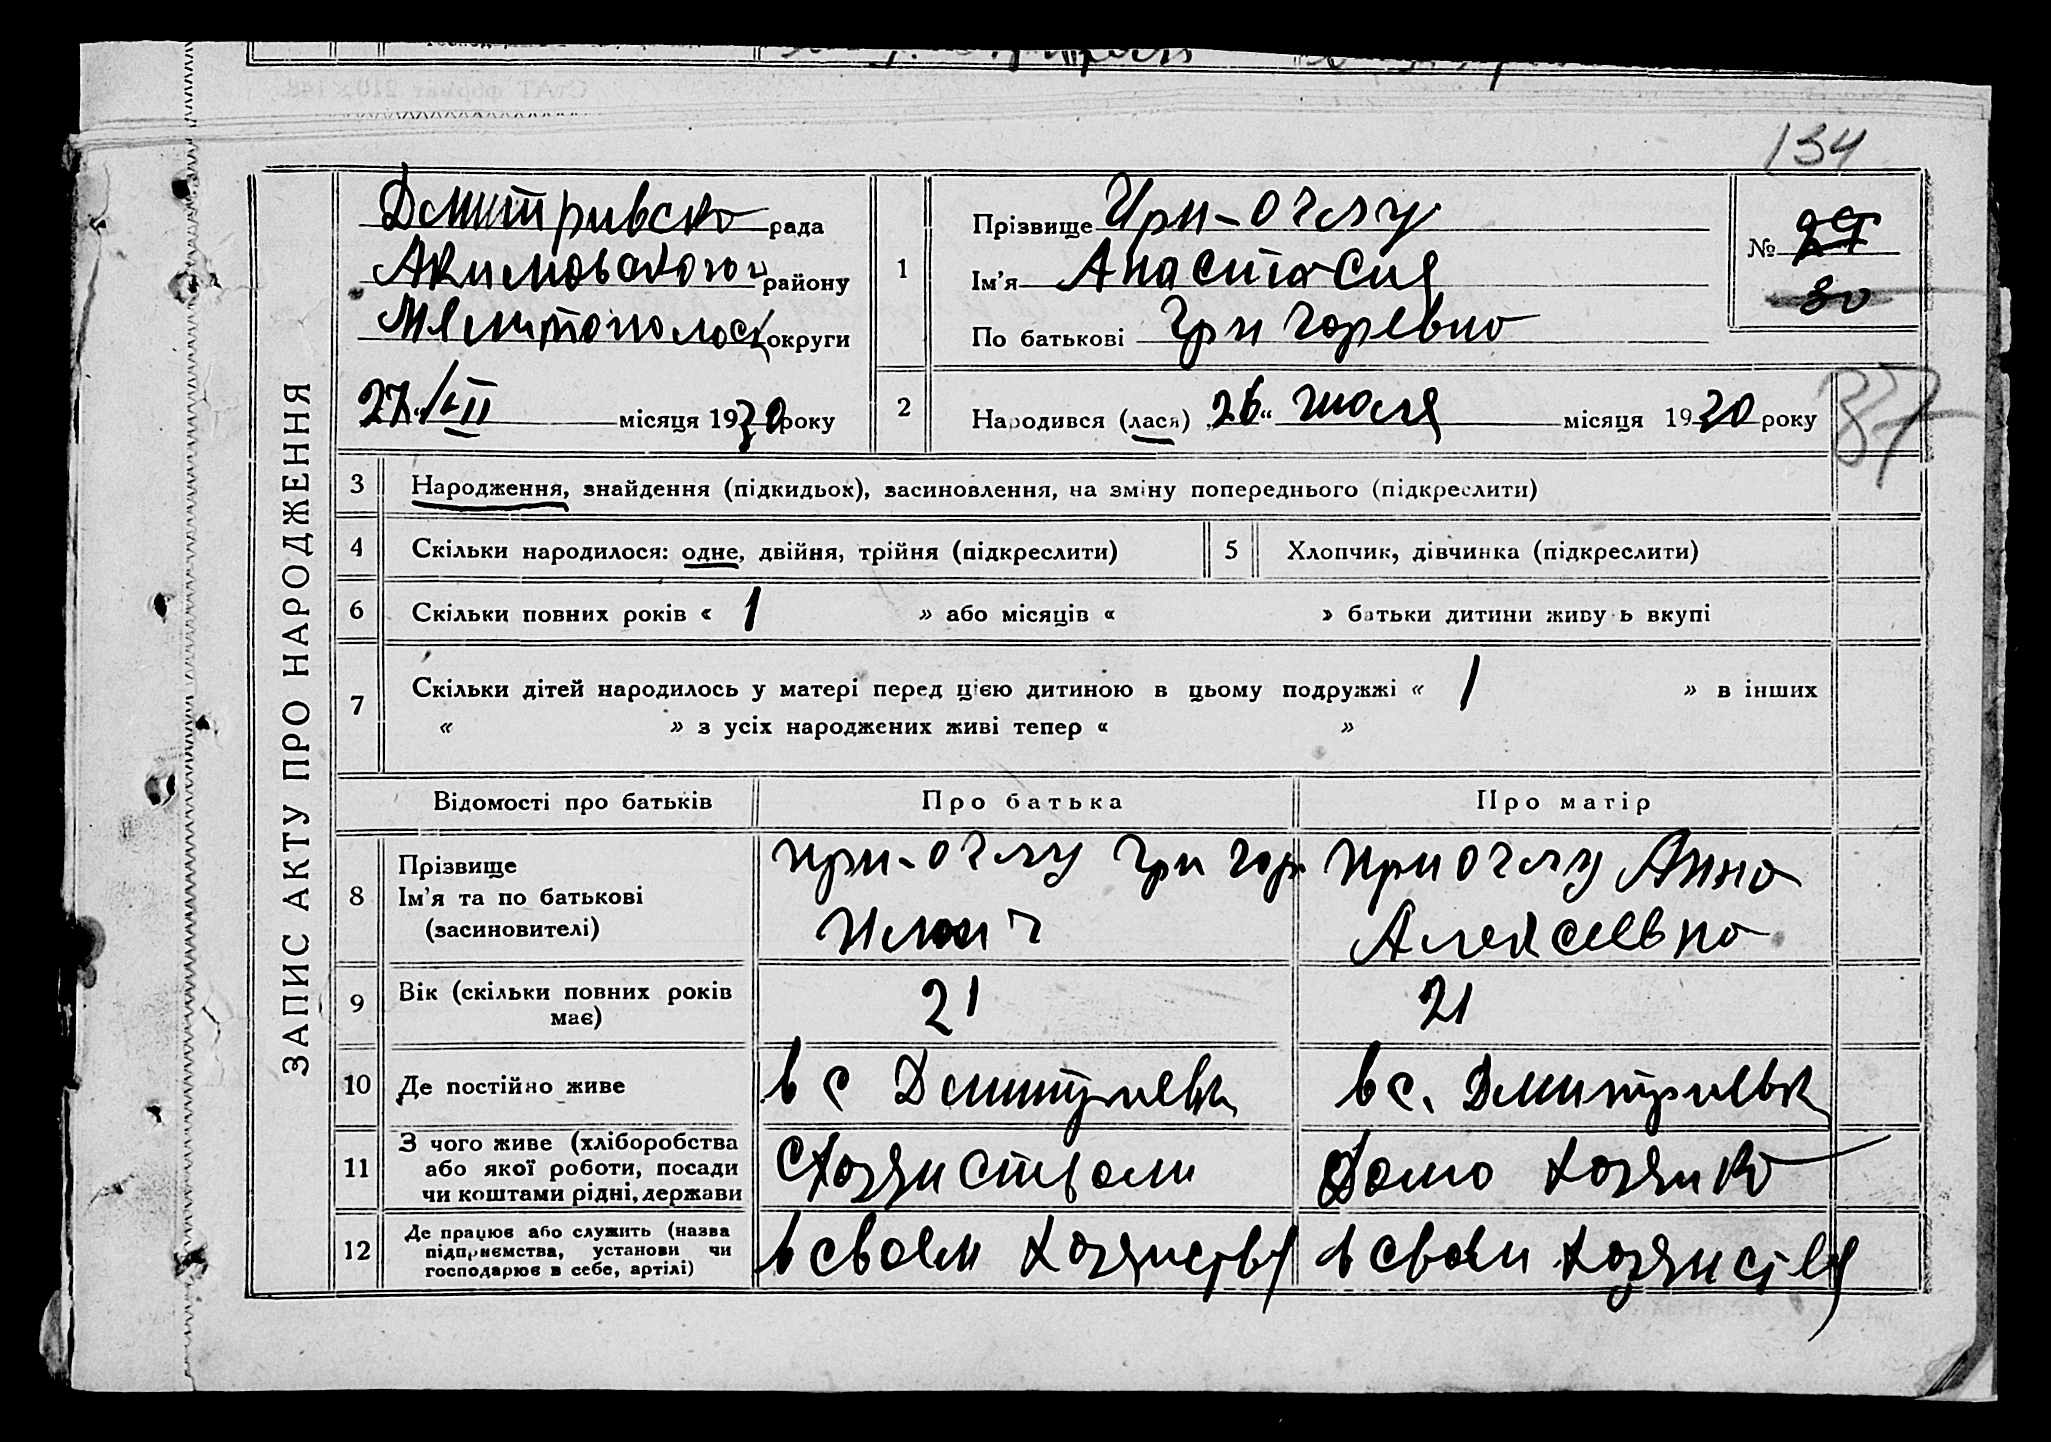 134
ЗАПИС АКТУ ПРО НАРОДЖЕННЯ
Дмитривска рада
Акимовского району
округи
27 "/VII місяця 1930 року
1
Прізвище Ири-оглу
Ім'я Анастасия
По батькові Григоревна
№ 29
30
37
2
Народився (лася) „26“ июля місяця 1930 року
3 Народження, знайдення (підкидьок), засиновлення, на зміну попереднього (підкреслити)
4 Скільки народилося: одне, двійня, трійня (підкреслити) 5 Хлопчик, дівчинка (підкреслити)
6 Скільки повних років « 1 » або місяців « » батьки дитини живуть вкупі
7 Скільки дітей народилось у матері перед цією дитиною в цьому подружжі « 1 » в інших
« » з усіх народжених живі тепер « »
Відомості про батьків Про батька Про матір
8 Прізвище
Ім'я та по батькові
(засиновителі)
Ири-оглу Григор
Илич
Ири оглу Анна
Алексеевна
9 Вік (скільки повних років
має)
21
21
10 Де постійно живе
в с Дмитриевк
в с. Дмитриевк
11 З чого живе (хліборобства
або якої роботи, посади
чи коштами рідні, держави
Домо хозяика
12 Де працює або служить (назва
підприємства, установи чи
господарює в себе, артілі)
в своем хозяиству
в своем хозяиству